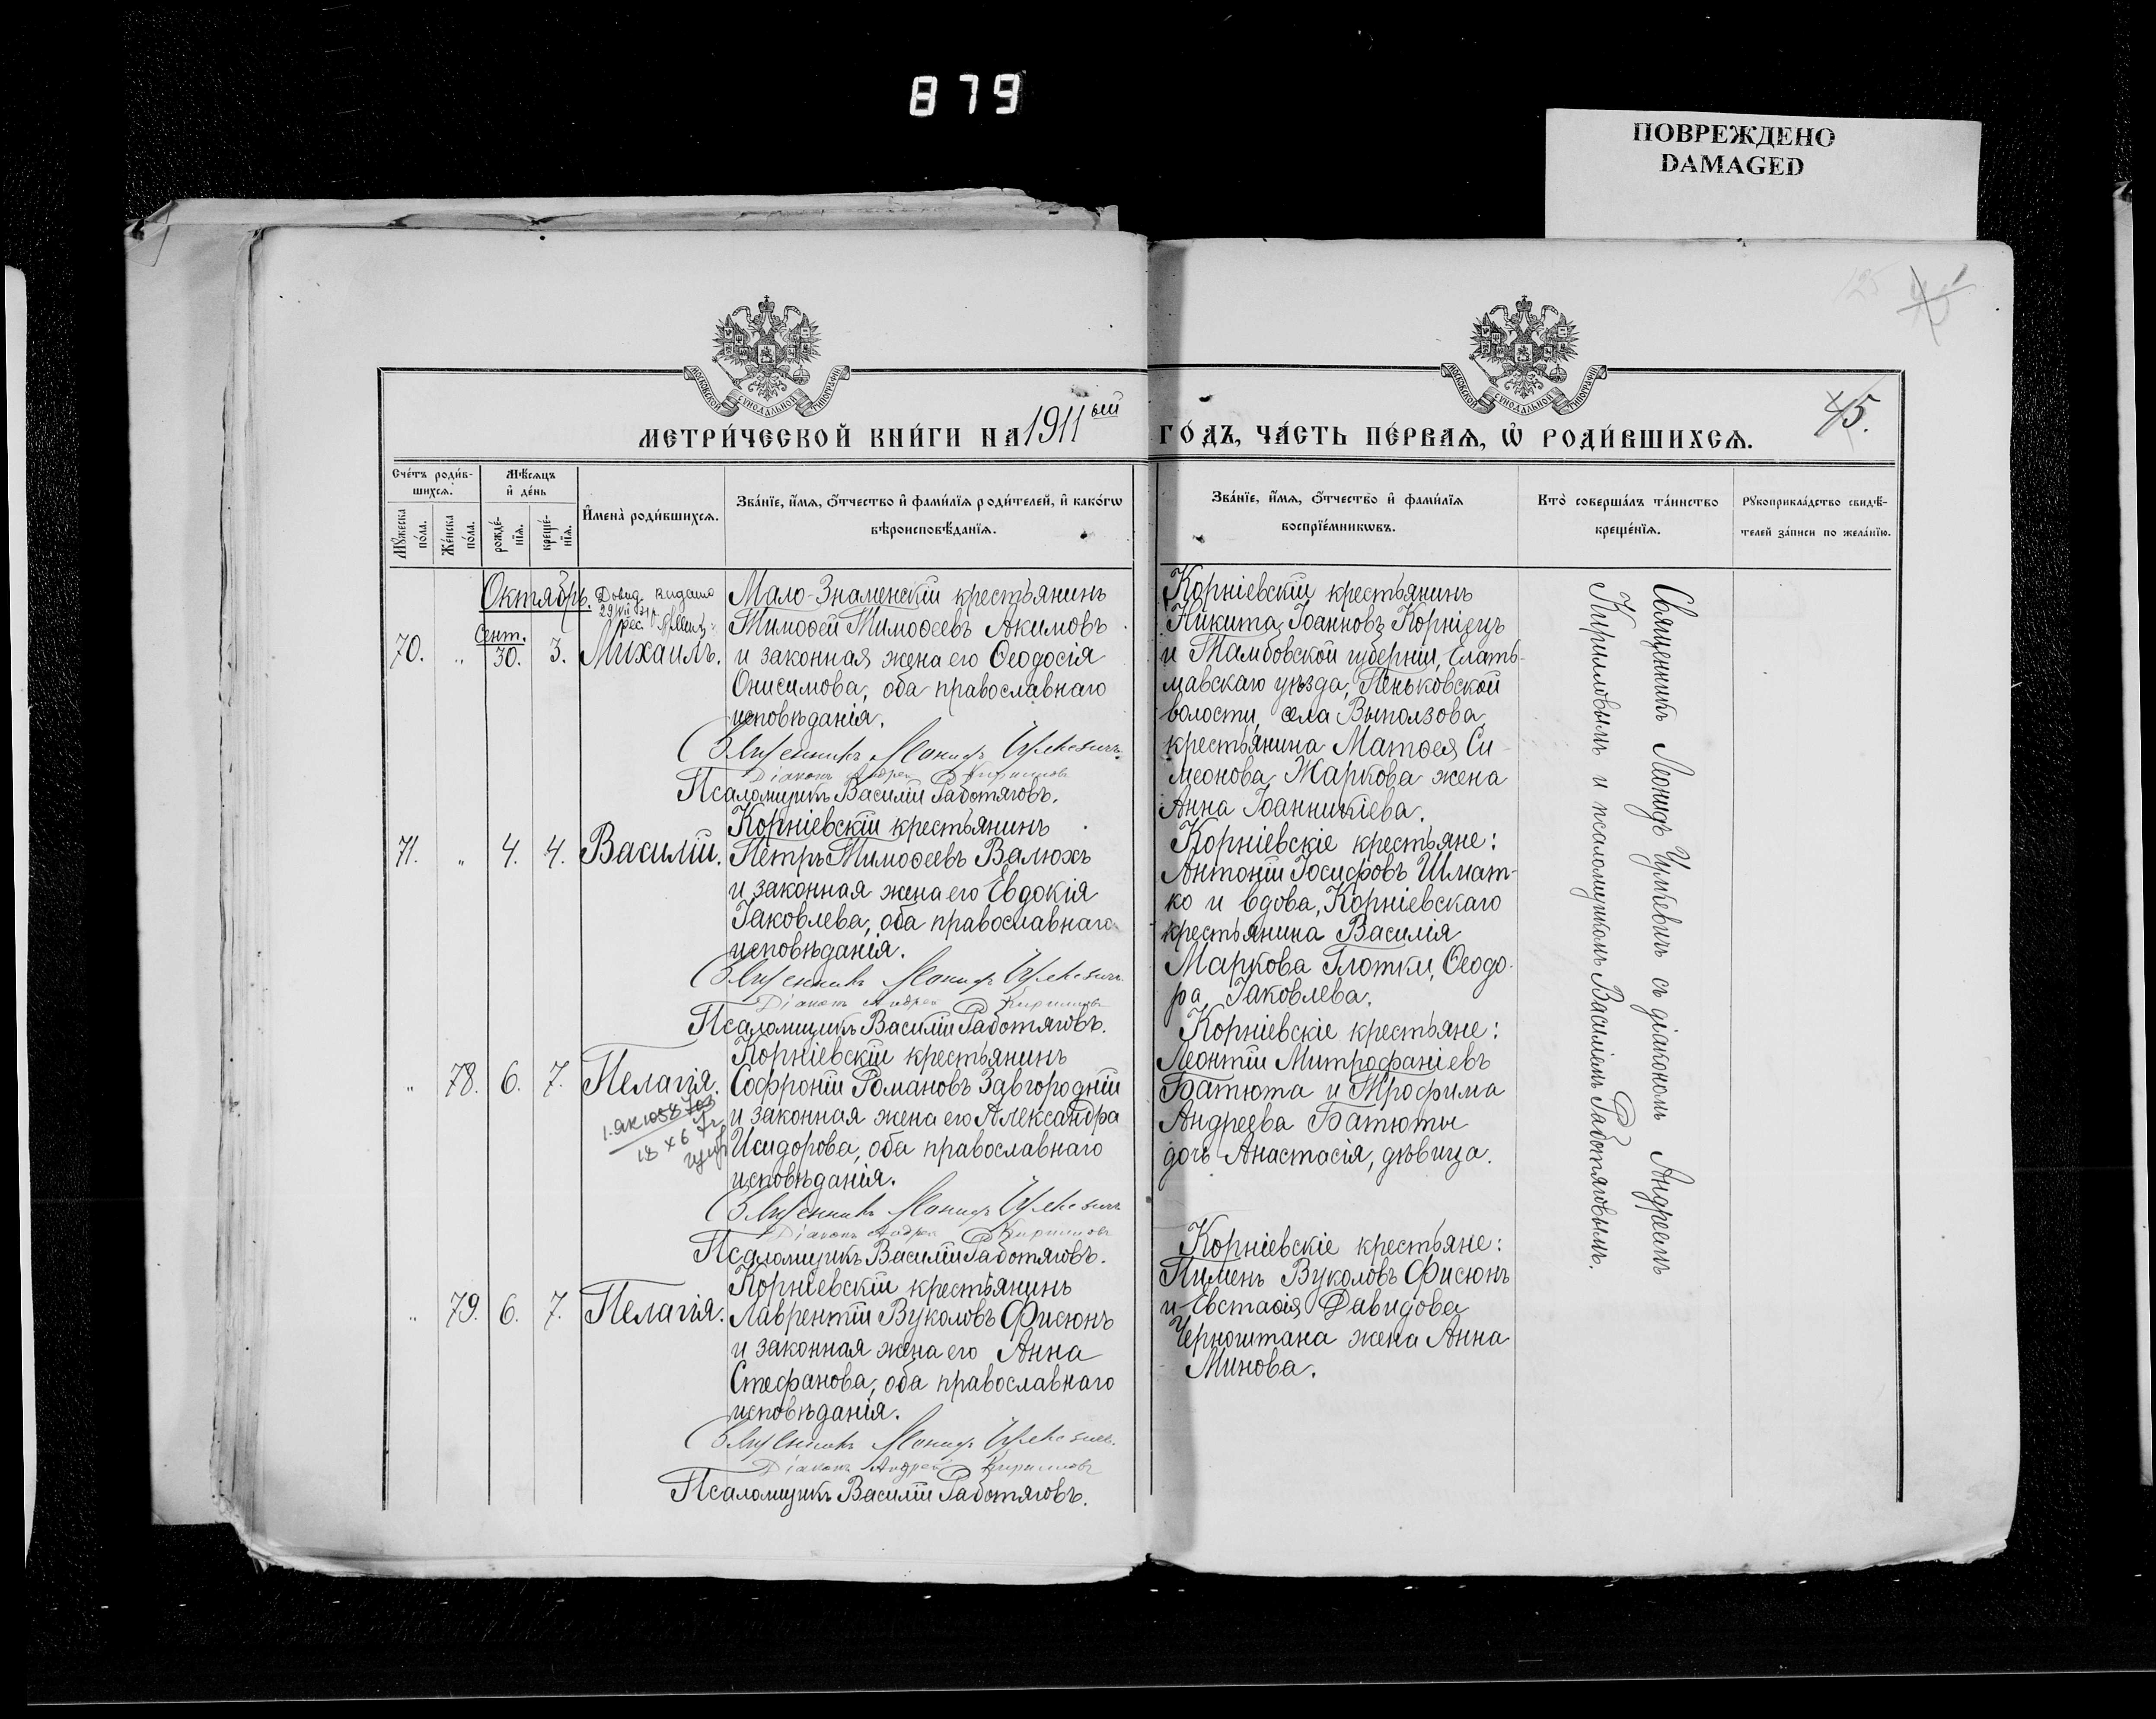 879
ПОВРЕЖДЕНО
DAMAGED
45.
МОСКОВСКОЙ СУНОДАЛЬНОЙ ТИПОГРАФІИ
МОСКОВСКОЙ СУНОДАЛЬНОЙ ТИПОГРАФІИ
МЕТРИ́ЧЕСКОЙ КНИ́ГИ НА 1911ый ГО́ДЪ, ЧА́СТЬ ПЕ́РВАѦ, Ѡ҆ РОДИ́ВШИХСѦ.
Сче́тъ роди́в-
шихсѧ.
Мꙋ́жеска
по́ла.
Же́нска
по́ла.
Мѣ́сѧцъ
и҆ де́нь
рожде́-
нїѧ.
креще́-
нїѧ.
И҆мена̀ роди́вшихсѧ.
Зва́нїе, и҆́мѧ, ѻ҆́тчество и҆ фами́лїѧ роди́телей, и҆ како́гѡ
вѣроисповѣ́данїѧ.
Зва́нїе, и҆́мѧ, ѻ҆́тчество и҆ фами́лїѧ
воспрїе́мникѡвъ.
Кто̀ соверша́лъ та́инство
креще́нїѧ.
Рꙋкоприкла́дство свидѣ́-
телей за́писи по жела́нїю.
Октябрь.
Довид. видано
70. „ Сент. 30. 3. Михаилъ.
Мало-Знаменскій крестьянинъ
Тимоѳей Тимоѳеевъ Акимовъ
и законная жена его Ѳеодосія
Онисимова, оба православнаго
исповѣданія.
Священникъ Леонидъ
Діаконъ Андрей Кирилловъ
Псаломщикъ Василій Работяговъ.
Корніевскій крестьянинъ
Никита Іоанновъ Корніецъ
и Тамбовской губерніи, Елать-
мавскаго уѣзда, Пеньковской
волости, села Выползова,
крестьянина Матѳея Си-
меонова Жаркова жена
Анна Іоанникіева.
71. „ 4. 4. Василій.
Корніевскій крестьянинъ
Петръ Тимоѳеевъ Валюхъ
и законная жена его Евдокія
Іаковлева, оба православнаго
исповѣданія.
Священникъ Леонидъ
Діаконъ Андрей Кирилловъ
Псаломщикъ Василій Работяговъ.
Корніевскіе крестьяне:
Антоній Іосифовъ Шмат-
ко и вдова, Корніевскаго
крестьянина Василія
Маркова Глотки, Ѳеодо-
ра Іаковлева.
„ 78. 6. 7. Пелагія.
Корніевскій крестьянинъ
Софроній Романовъ Завгородній
и законная жена его Александра
Исидорова, оба православнаго
исповѣданія.
Священникъ Леонидъ
Діаконъ Андрей Кирилловъ
Псаломщикъ Василій Работяговъ.
Корніевскіе крестьяне:
Леонтій Митрофаніевъ
Батюта и Трофима
Андреева Батюты
дочь Анастасія, дѣвица.
„ 79. 6. 7. Пелагія.
Корніевскій крестьянинъ
Лаврентій Вуколовъ Фисюнъ
и законная жена его Анна
Стефанова, оба православнаго
исповѣданія.
Священникъ Леонидъ
Діаконъ Андрей Кирилловъ
Псаломщикъ Василій Работяговъ.
Корніевскіе крестьяне:
Пименъ Вуколовъ Фисюнъ
и Евстаѳія Давидова
Черноштана жена Анна
Минова.
Священникъ Леонидъ съ діакономъ Андреемъ
Кирилловымъ и псаломщикомъ Василіемъ Работяговымъ.